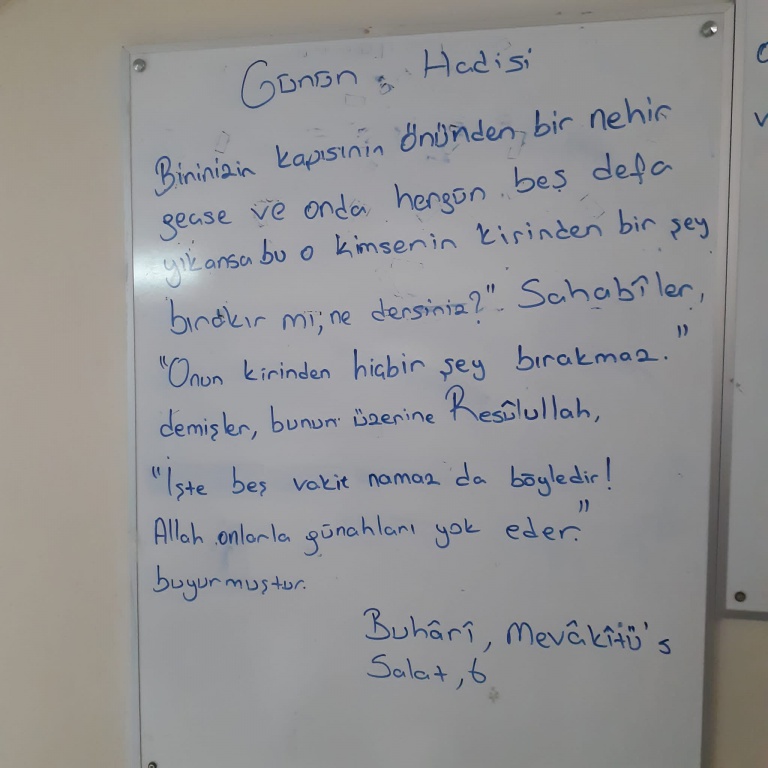 Günün Hadisi
Birinizin kapısının önünden, bir nehir
geçse ve onda hergün beş defa
yıkansa bu o kimsenin kirinden bir şey
bırakır mı; ne dersiniz?" Sahabîler,
"Onun kirinden hiçbir şey bırakmaz."
demişler, bunun üzerine Resûlullah,
"İşte beş vakit namaz da böyledir!
Allah onlarla günahları yok eder."
buyurmuştur.
Buhârî, Mevâkîtü's
Salat, 6